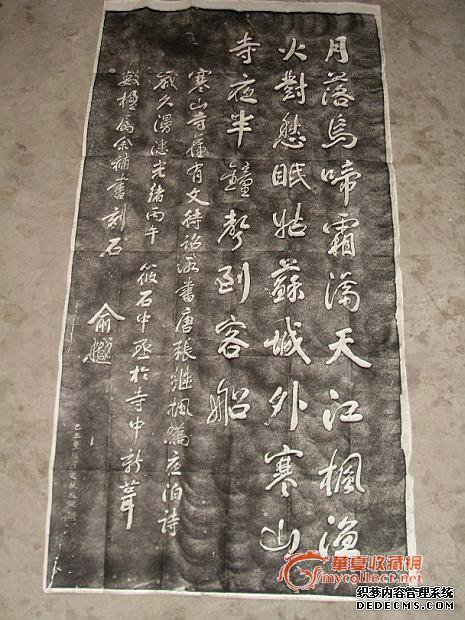 月落烏啼霜滿天江楓漁
火對愁眠姑蘇城外寒山
寺夜半鐘聲到客船
寒山寺舊有文待詔所書唐張繼楓橋夜泊詩
歲久漫漶光緒丙午 筱石中丞於寺中新葺
數楹屬余補書刻石
俞樾
華夏收藏網
mycollect.net
织梦内容管理系统
DEDECMS.COM